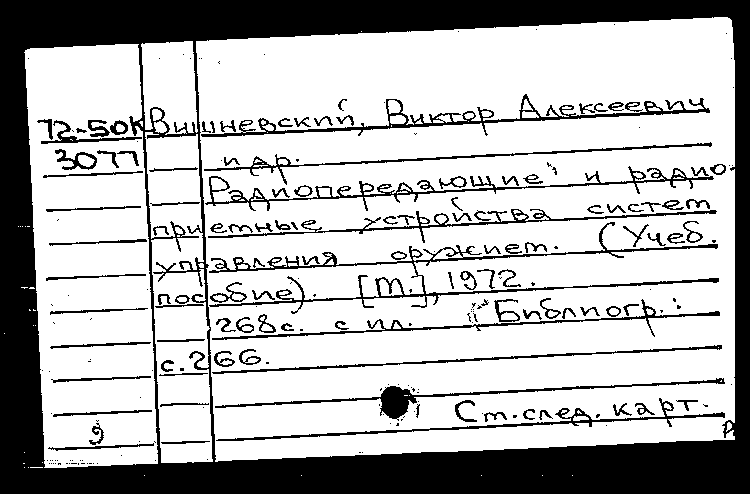 72-50К Вишневский, Виктор Алексеевич
3077 и др.
Радиопередающие и радио-
приемные устройства систем
управления оружием. (Учеб.
пособие). [М.], 1972.
268с. с ил. (Библиогр.:
с.266.
См.след.карт.
9